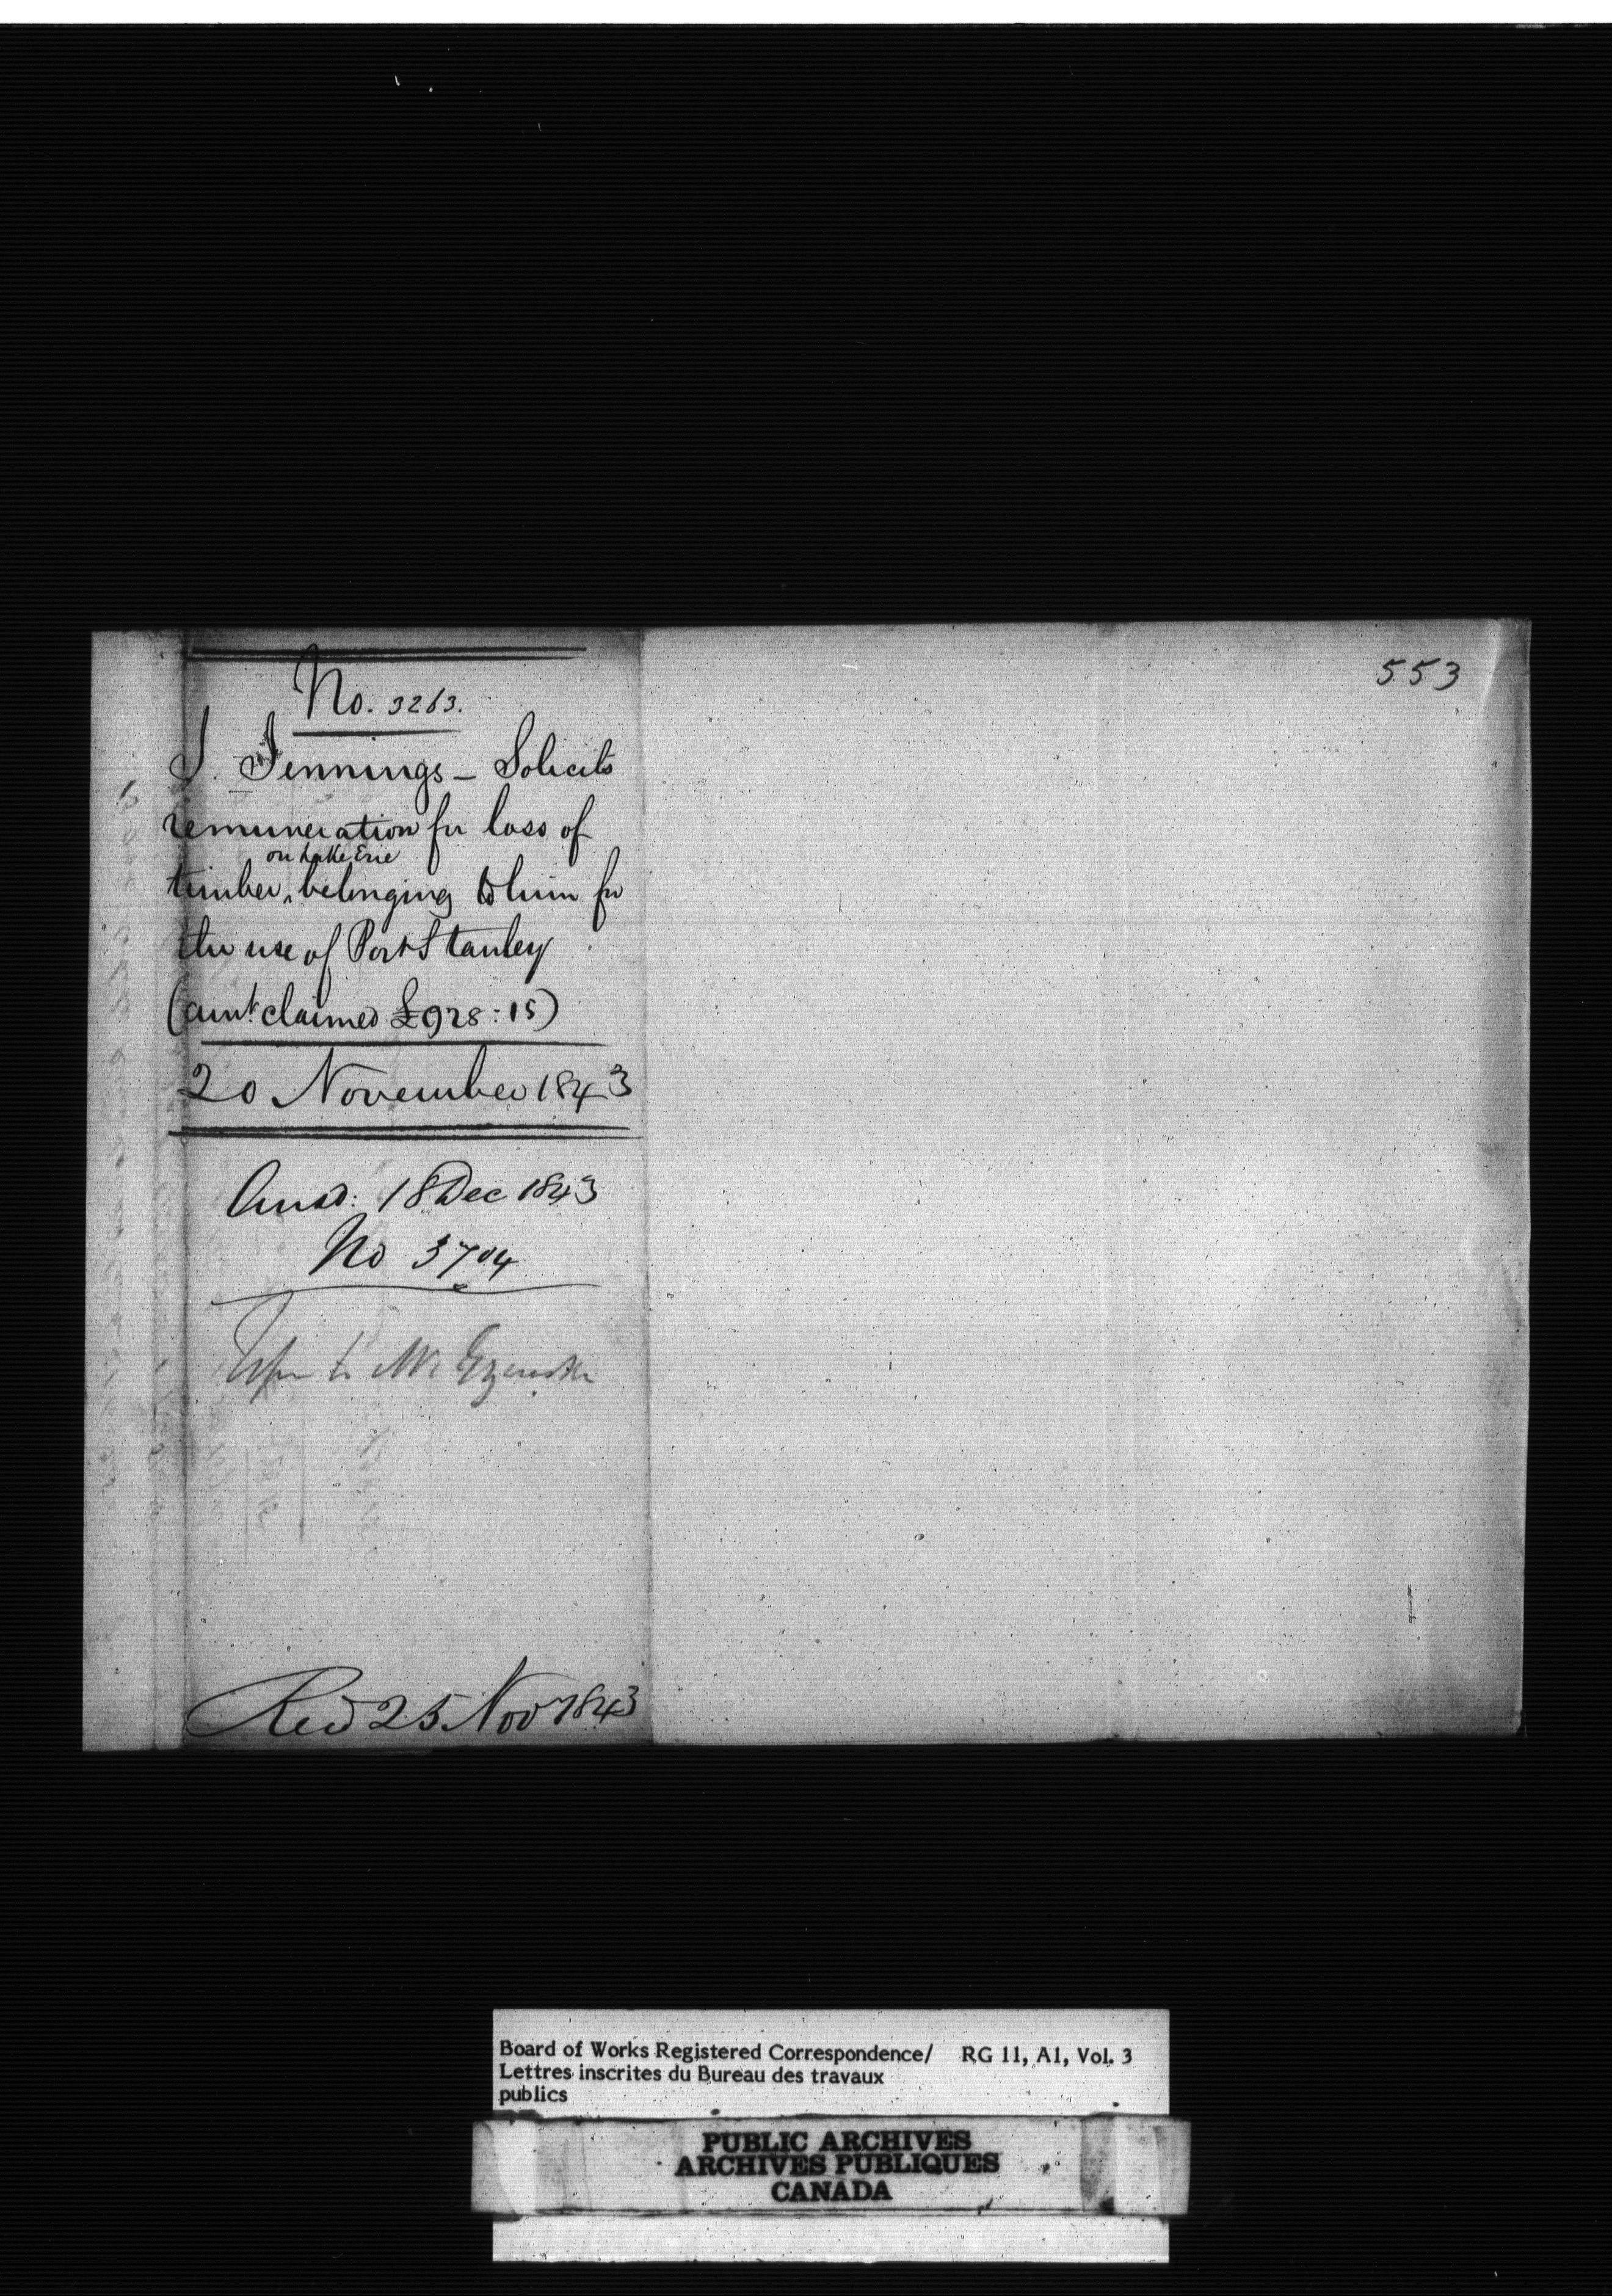 No. 3263.
J. Jennings - Solicits
remuneration for loss of
on Lake Erie
timber, belonging to him for
the use of Port Stanley
(amt. claimed £928:15)
20 November 1843
Ansd: 18 Dec 1843
No 3704
to Mr
Recd 25 Nov 1843
553
Board of Works Registered Correspondence/ RG 11, A1, Vol. 3
Lettres inscrites du Bureau des travaux
publics
PUBLIC ARCHIVES
ARCHIVES PUBLIQUES
CANADA